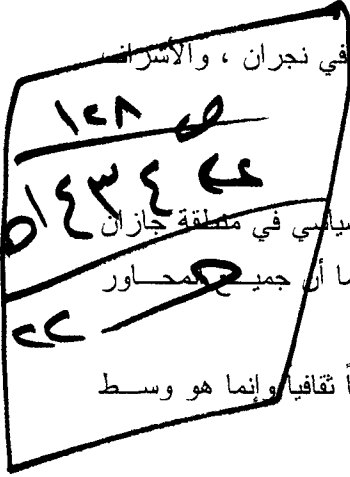 في نجران ، والأشراف
ص ١٢٨
ع ١٤٣٤ه
سياسي في منطقة جازان
ما أن جميع المحاور
٢٢
اً ثقافياً وإنما هو وسط